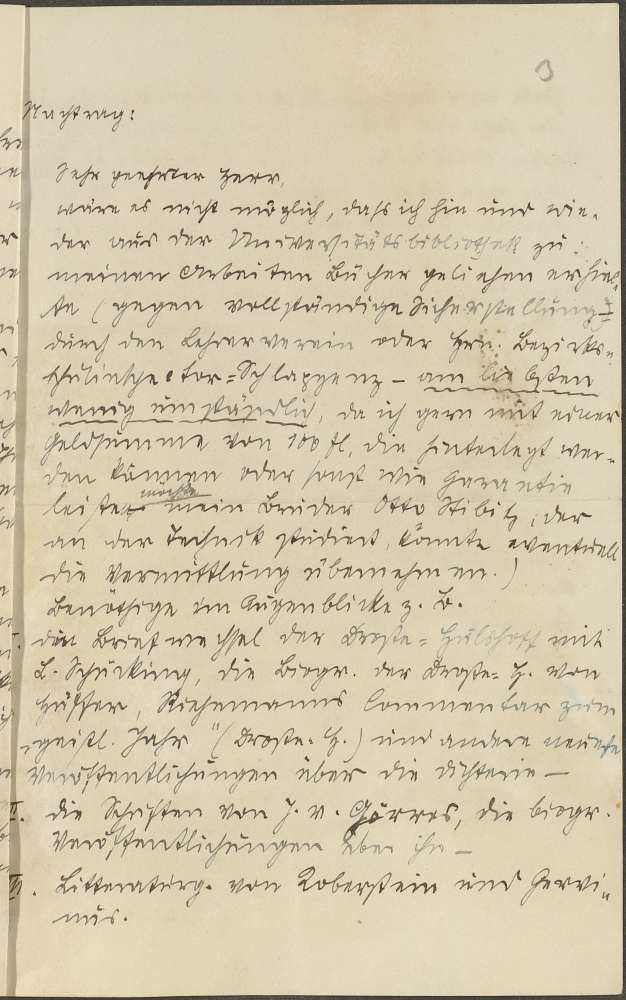 3
Nachtrag:
Sehr geehrter Herr,
wäre es nicht möglich, dass ich hin und wie-
der aus der Universitätsbibliothek zu
meinen Arbeiten Bücher geliehen erhiel-
te (gegen vollständige Sicherstellung
durch den Lehrerverein oder Hrn. Bezirks-
schulinspector = Schlapzenz – am liebsten
wenig umständlich, da ich gern mit einer
Geldsumme von 100 fl, die hinterlegt wer-
den können oder sonst wie Garantie
leisten möchte mein Bruder Otto Stibitz, der
an der Technik studiert, könnte eventuell
die Vermittlung übernehmen.)
Benöthige im Augenblicke z. B.
I. den Briefwechsel der Droste-Hülshoff mit
L. Schücking, die Biogr. der Droste-H. von
Hüffer, Riehemanns Commentar zum
"geistl. Jahr" (Droste-H.) und andere neueste
Veröffentlichungen über die Dichterin –
II. die Schriften von J. v. Görres, die biogr.
Veröffentlichungen über ihn –
III. Litteraturg. von Koberstein und Gervi-
nus.